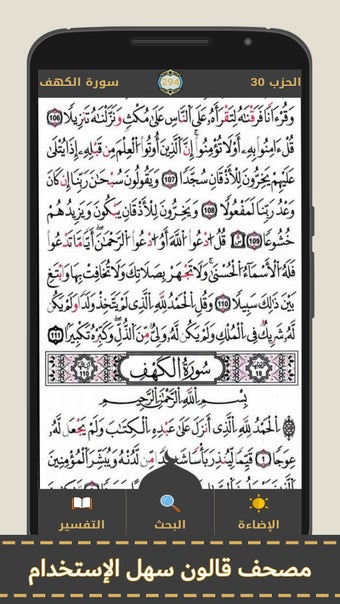 سورة الكهف 294 الحزب 30
وَقُرْءَانًا فَرَقْنَٰهُ لِتَقْرَأَهُۥ عَلَى ٱلنَّاسِ عَلَىٰ مُكْثٍ وَنَزَّلْنَٰهُ تَنزِيلًا 106
قُلْ ءَامِنُوا۟ بِهِۦٓ أَوْ لَا تُؤْمِنُوٓا۟ إِنَّ ٱلَّذِينَ أُوتُوا۟ ٱلْعِلْمَ مِن قَبْلِهِۦٓ إِذَا يُتْلَىٰ
عَلَيْهِمْ يَخِرُّونَ لِلْأَذْقَانِ سُجَّدًا 107 وَيَقُولُونَ سُبْحَٰنَ رَبِّنَآ إِن كَانَ
وَعْدُ رَبِّنَا لَمَفْعُولًا 108 وَيَخِرُّونَ لِلْأَذْقَانِ يَبْكُونَ وَيَزِيدُهُمْ
خُشُوعًا 109 قُلُ ٱدْعُوا۟ ٱللَّهَ أَوُ ٱدْعُوا۟ ٱلرَّحْمَٰنَ أَيًّا مَّا تَدْعُوا۟
فَلَهُ ٱلْأَسْمَآءُ ٱلْحُسْنَىٰ وَلَا تَجْهَرْ بِصَلَاتِكَ وَلَا تُخَافِتْ بِهَا وَٱبْتَغِ
بَيْنَ ذَٰلِكَ سَبِيلًا 110 وَقُلِ ٱلْحَمْدُ لِلَّهِ ٱلَّذِى لَمْ يَتَّخِذْ وَلَدًا وَلَمْ يَكُن
لَّهُۥ شَرِيكٌ فِى ٱلْمُلْكِ وَلَمْ يَكُن لَّهُۥ وَلِىٌّ مِّنَ ٱلذُّلِّ وَكَبِّرْهُ تَكْبِيرًا 111
سُورَةُ الكَهْف
بِسْمِ ٱللَّهِ ٱلرَّحْمَٰنِ ٱلرَّحِيمِ
ٱلْحَمْدُ لِلَّهِ ٱلَّذِىٓ أَنزَلَ عَلَىٰ عَبْدِهِ ٱلْكِتَٰبَ وَلَمْ يَجْعَل لَّهُۥ
عِوَجًا 1 قَيِّمًا لِّيُنذِرَ بَأْسًا شَدِيدًا مِّن لَّدُنْهُ وَيُبَشِّرَ ٱلْمُؤْمِنِينَ
الإضاءة البحث التفسير
مصحف قالون سهل الإستخدام